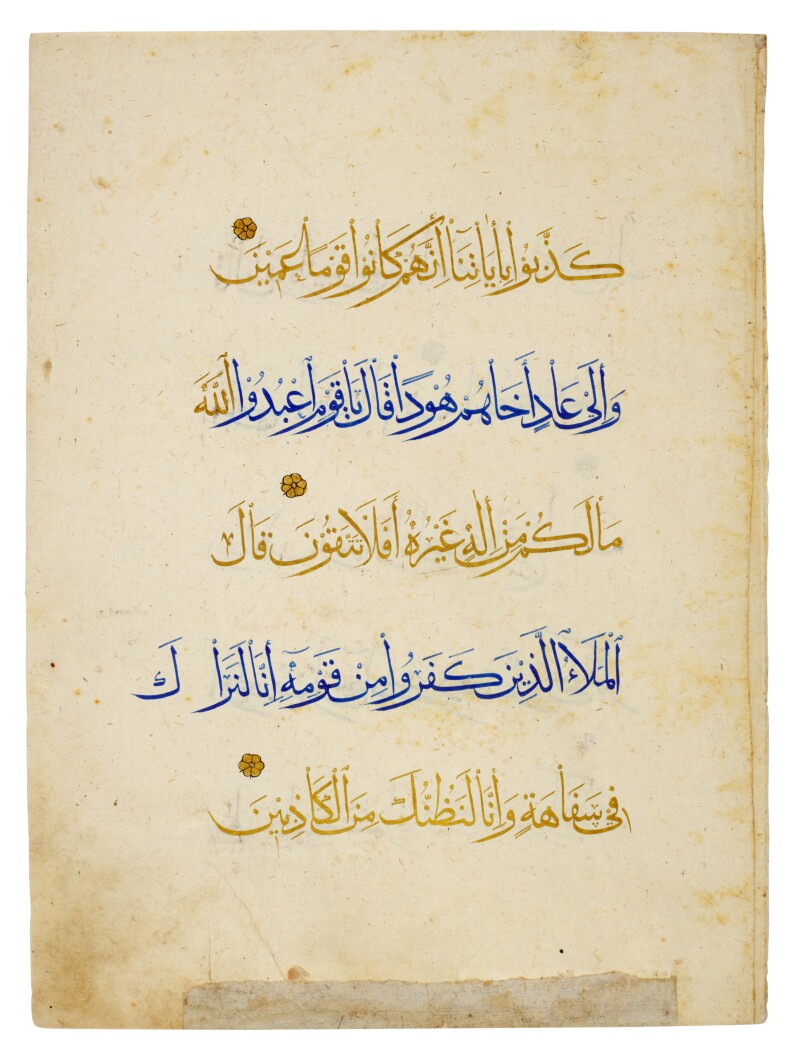 كَذَّبُوا بِأَيَاتِنَا أنَّهُمْ كَانُوا قَوْمًا عَمِيْنَ
وَإِلَىٰ عَادٍ أَخَاهُمْ هُوْدًا قَالَ يَا قَوْمِ اعْبُدُوْا اللَّهَ
مَا لَكُمْ مِنْ إِلٰهٍ غَيْرُهُ أَفَلَا تَتَّقُوْنَ قَالَ
الْمَلَاءُ الَّذِيْنَ كَفَرُوا مِنْ قَوْمِهِ إنَّا لَنَرَاكَ
فِي سَفَاهَةٍ وَإنَّا لَنَظُنُّكَ مِنَ الْكَاذِبِيْنَ